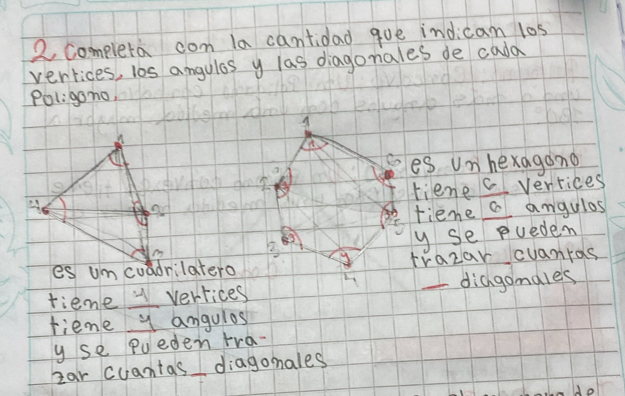 2. completá con la cantidad que indican los
vertices, los angulos y las diagonales de cada
Poligono.
1
2
3
4
es un cuadrilatero
tiene 4 vertices
tiene 4 angulos
y se pueden tra-
zar cuantas _ diagonales
1
2
3
4
5
6
es un hexagono
tiene 6 vertices
tiene 6 angulos
y se pueden
trazar cuantas
_ diagonales